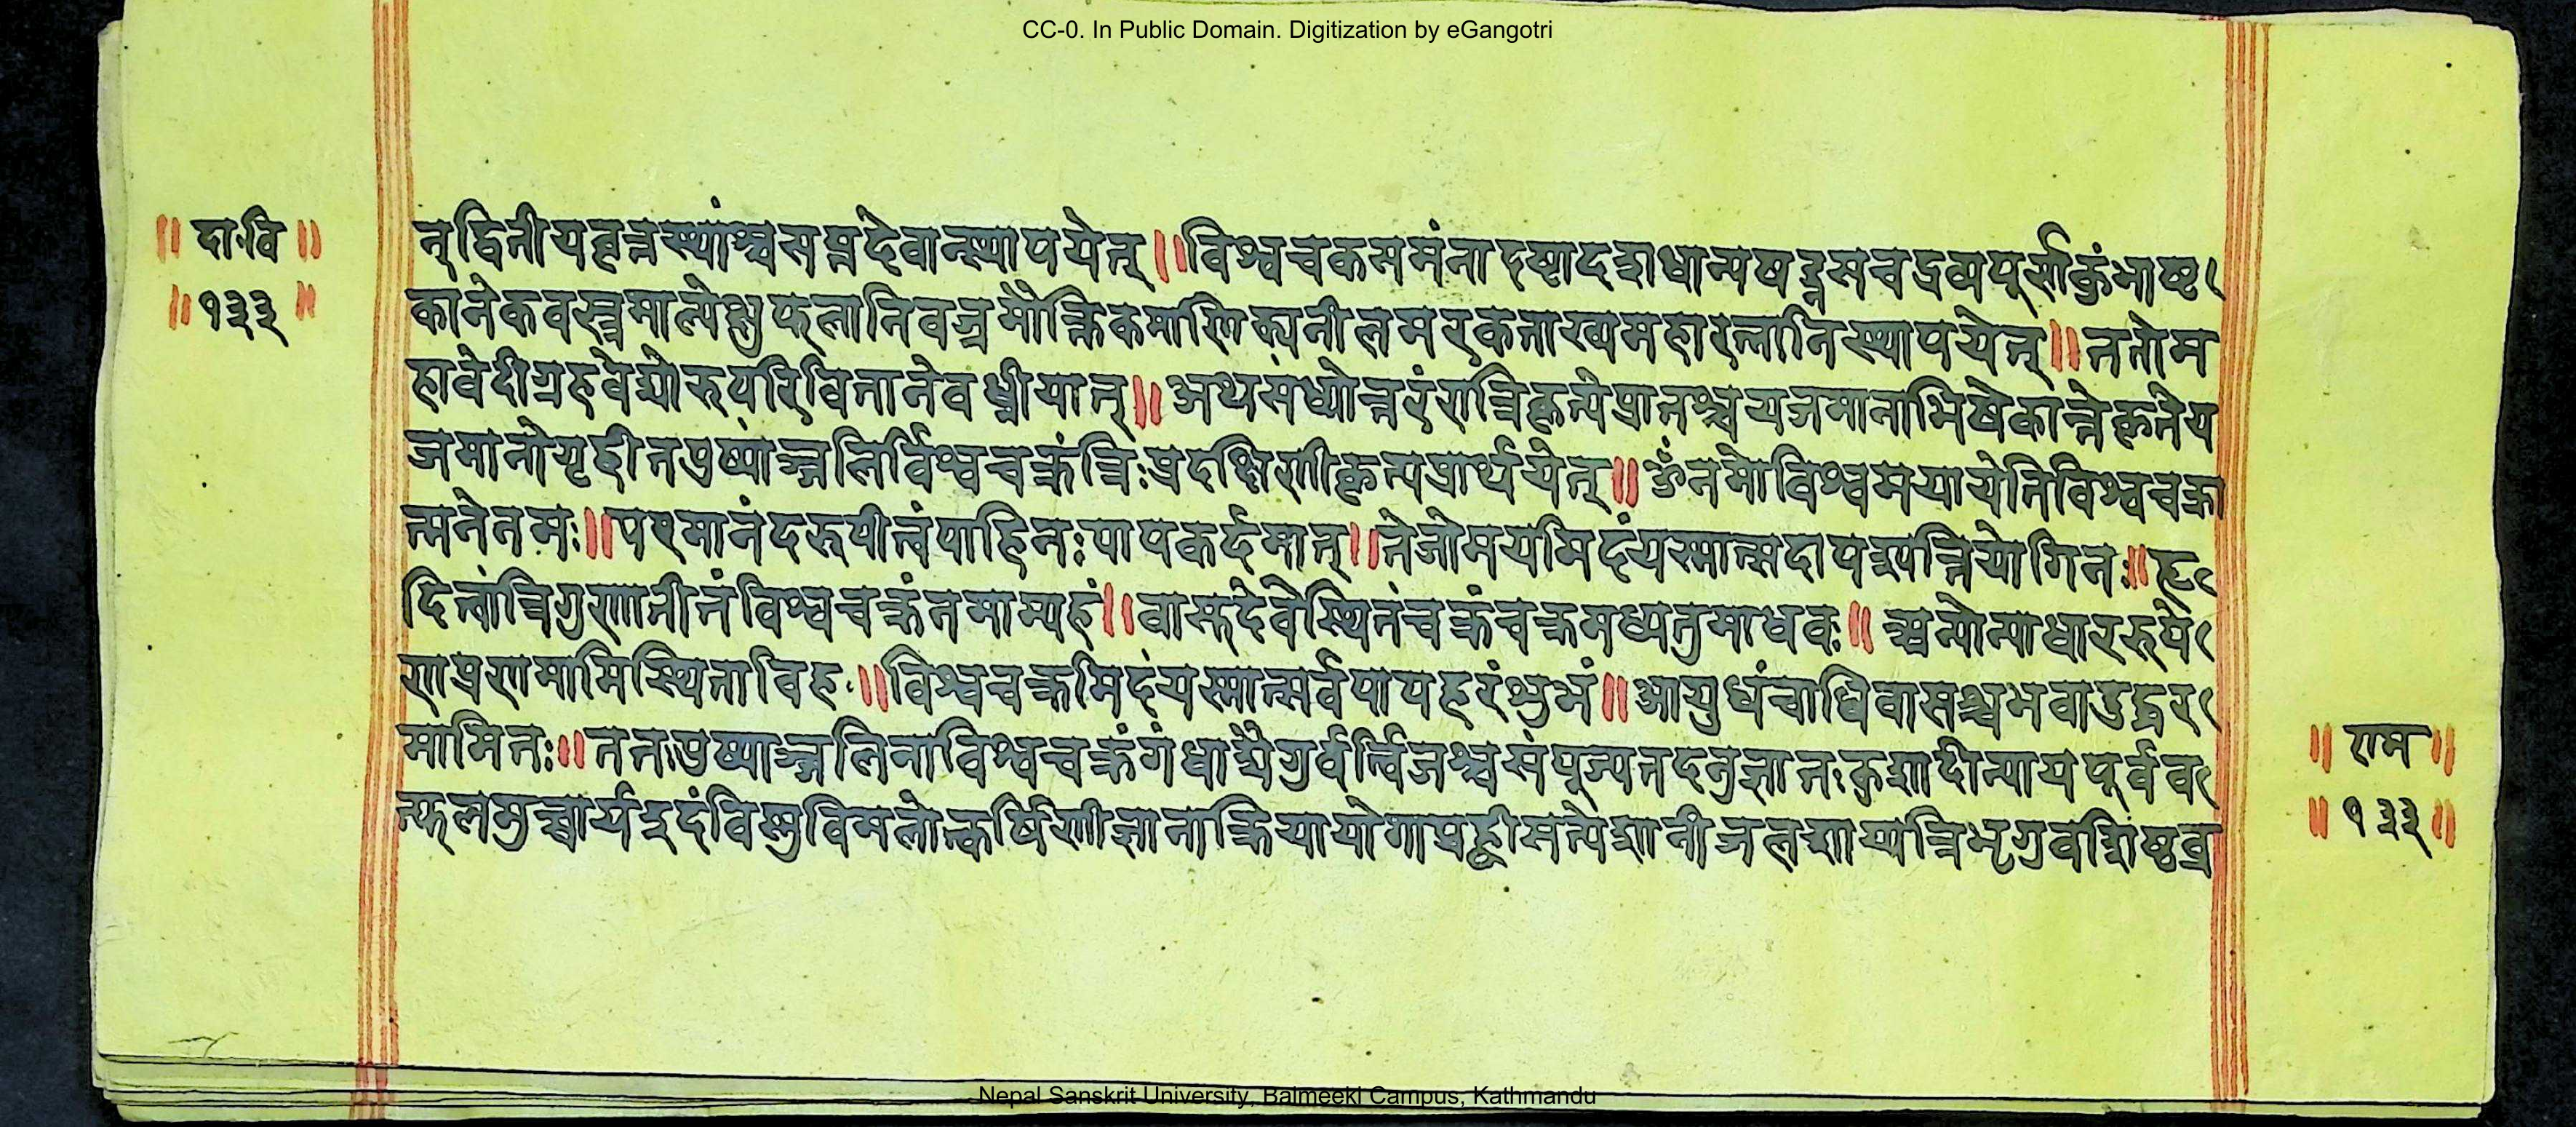 CC-0. In Public Domain. Digitization by eGangotri
॥ दा॰वि ॥
॥ १३३ ॥
त् द्वितीयवृत्तस्थांश्चसप्तदेवान्स्थापयेत् ॥ विश्वचकसमंतादष्टादशधान्यषड्रसचद्रव्यपूर्णकुंभाष्ट
कानेकवस्त्रमाल्येक्षुफलानिवज्रमौक्तिकमाणिक्यनीलमरकताख्यमहारत्नानिस्थापयेत् ॥ ततोम
हावेदीग्रहवेद्योरुपरिवितानेवध्नीयात् ॥ अथसंध्योत्तरंरात्रिकृत्येप्रातश्चयजमानाभिषेकान्तेकृतेय
जमानोगृहीतपुष्पाञ्जलिर्विश्वचक्रंत्रिःप्रदक्षिणीकृत्यप्रार्थयेत् ॥ ॐनमोविश्वमयायेतिविश्वचक्रा
त्मनेनमः ॥ परमानंदरूपीत्वंपाहिनःपापकर्दमात् ॥ तेजोमयमिदंयस्मात्सदापश्यन्तियोगिनः ॥ हृ
दितत्वांत्रिगुणातीतंविश्वचक्रंनमाम्यहं ॥ वासुदेवेस्थितंचक्रंचक्रमध्येतुमाधवः ॥ अन्योन्याधाररूपे
णप्रणमामिस्थिताविह ॥ विश्वचक्रमिदंयस्मात्सर्वपापहरंशुभं ॥ आयुधंचाधिवासश्चभवादुद्धर
मामितः ॥ ततःपुष्पाञ्जलिनाविश्वचक्रंगंधाद्यैगुर्वर्त्विजश्चसंपूज्यतदनुज्ञातःकुशादीन्यायपूर्वव
त्फलमुच्चार्यइदंविष्णुविमलोत्कर्षिणीज्ञानाक्रियायोगाप्रह्वीसत्येशानीजलशाय्यत्रिभृगुवशिष्ठब्र
॥ राम ॥
॥ १३३ ॥
Nepal Sanskrit University, Balmeeki Campus, Kathmandu